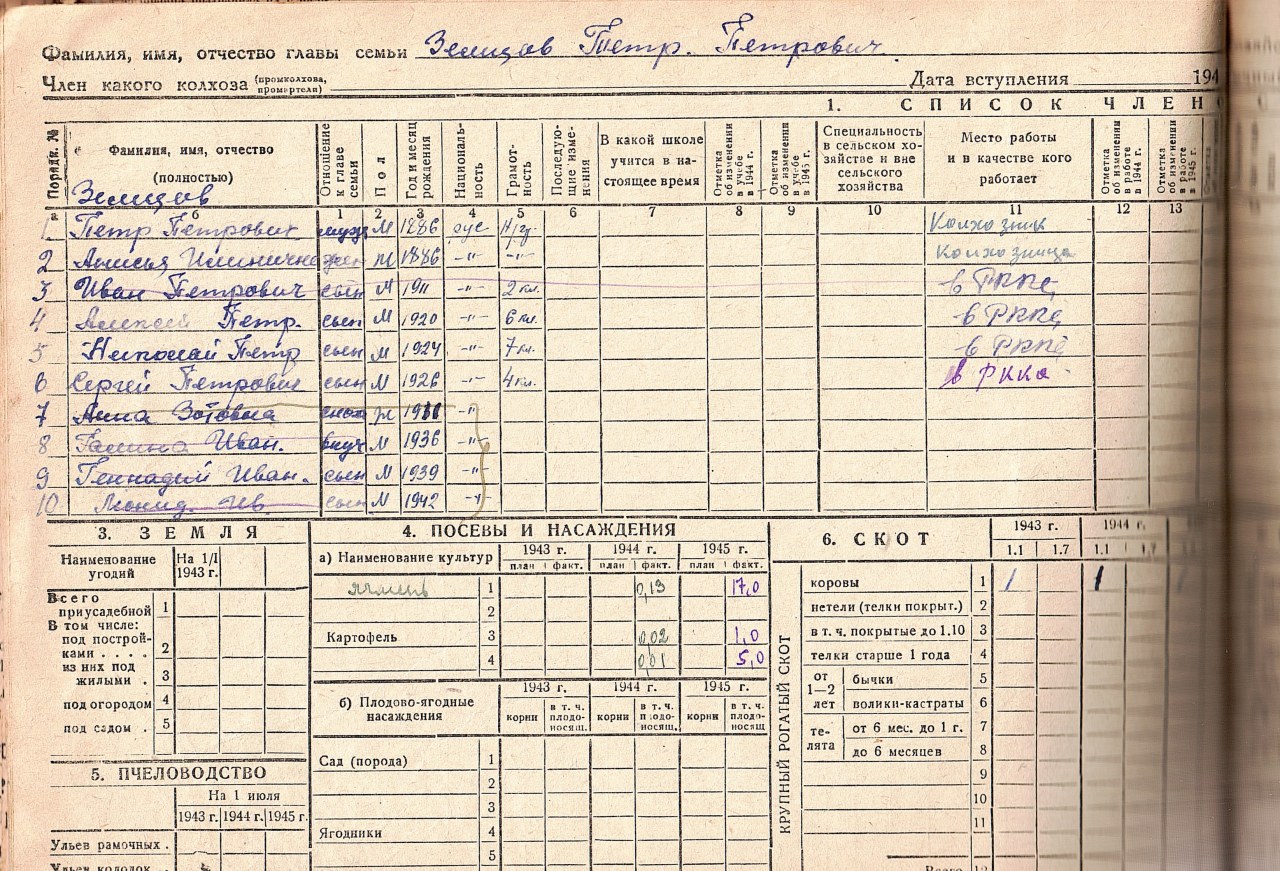 Фамилия, имя, отчество главы семьи Земцов Петр. Петрович.
Член какого колхоза (промколхоза, промартели) Дата вступления 194
1. СПИСОК ЧЛЕНО
Порядк. №
Фамилия, имя, отчество (полностью)
Земцов
Отношение к главе семьи
Пол
Год и месяц рождения
Националь-ность
Грамот-ность
Последую-щие изме-нения
В какой школе учится в на-стоящее время
Отметка об изменении в учебе в 1944 г.
Отметка об изменении в учебе в 1945 г.
Специальность в сельском хо-зяйстве и вне сельского хозяйства
Место работы и в качестве кого работает
Отметка об изменении в работе в 1944 г.
Отметка об изменении в работе в 1945 г.
б 1 2 3 4 5 6 7 8 9 10 11 12 13
1 Петр Петрович муж М 1886 рус Н/гр. Колхозник
2 жен Ж 1886 -"- -"- Колхозница
3 Иван Петрович сын М 1911 -"- 2 кл. в РККА
4 Алексей Петр. сын М 1920 -"- 6 кл. в РККА
5 Николай Петр сын М 1924 -"- 7 кл. в РККА
6 Сергей Петрович сын М 1926 -"- 4 кл. в РККА
7 Анна Зотовна сноха Ж -"-
8 Иван. внуч М 1936 -"-
9 Геннадий Иван. сын М 1939 -"-
10 Леонид. Ив. сын М 1942 -"-
3. ЗЕМЛЯ
Наименование угодий
На 1/I 1943 г.
Всего приусадебной 1
В том числе:
под построй-ками . . . . 2
из них под жилыми . 3
под огородом 4
под садом . 5
5. ПЧЕЛОВОДСТВО
На 1 июля
1943 г. 1944 г. 1945 г.
Ульев рамочных .
Ульев колодок
4. ПОСЕВЫ И НАСАЖДЕНИЯ
а) Наименование культур
1943 г. 1944 г. 1945 г.
план факт. план факт. план факт.
ячмень 1 0,13 17,0
2
Картофель 3 0,02 1,0
4 0,01 5,0
б) Плодово-ягодные насаждения
1943 г. 1944 г. 1945 г.
корни в т. ч. плодо-носящ. корни в т. ч. плодо-носящ. корни в т. ч. плодо-носящ
Сад (порода) 1
2
3
Ягодники 4
5
6. СКОТ
1943 г. 1944 г.
1.1 1.7 1.1 1.7
КРУПНЫЙ РОГАТЫЙ СКОТ
коровы 1 1 1
нетели (телки покрыт.) 2
в т. ч. покрытые до 1.10 3
телки старше 1 года 4
от 1—2 лет
бычки 5
волики-кастраты 6
те-лята
от 6 мес. до 1 г. 7
до 6 месяцев 8
9
10
11
Всего 12